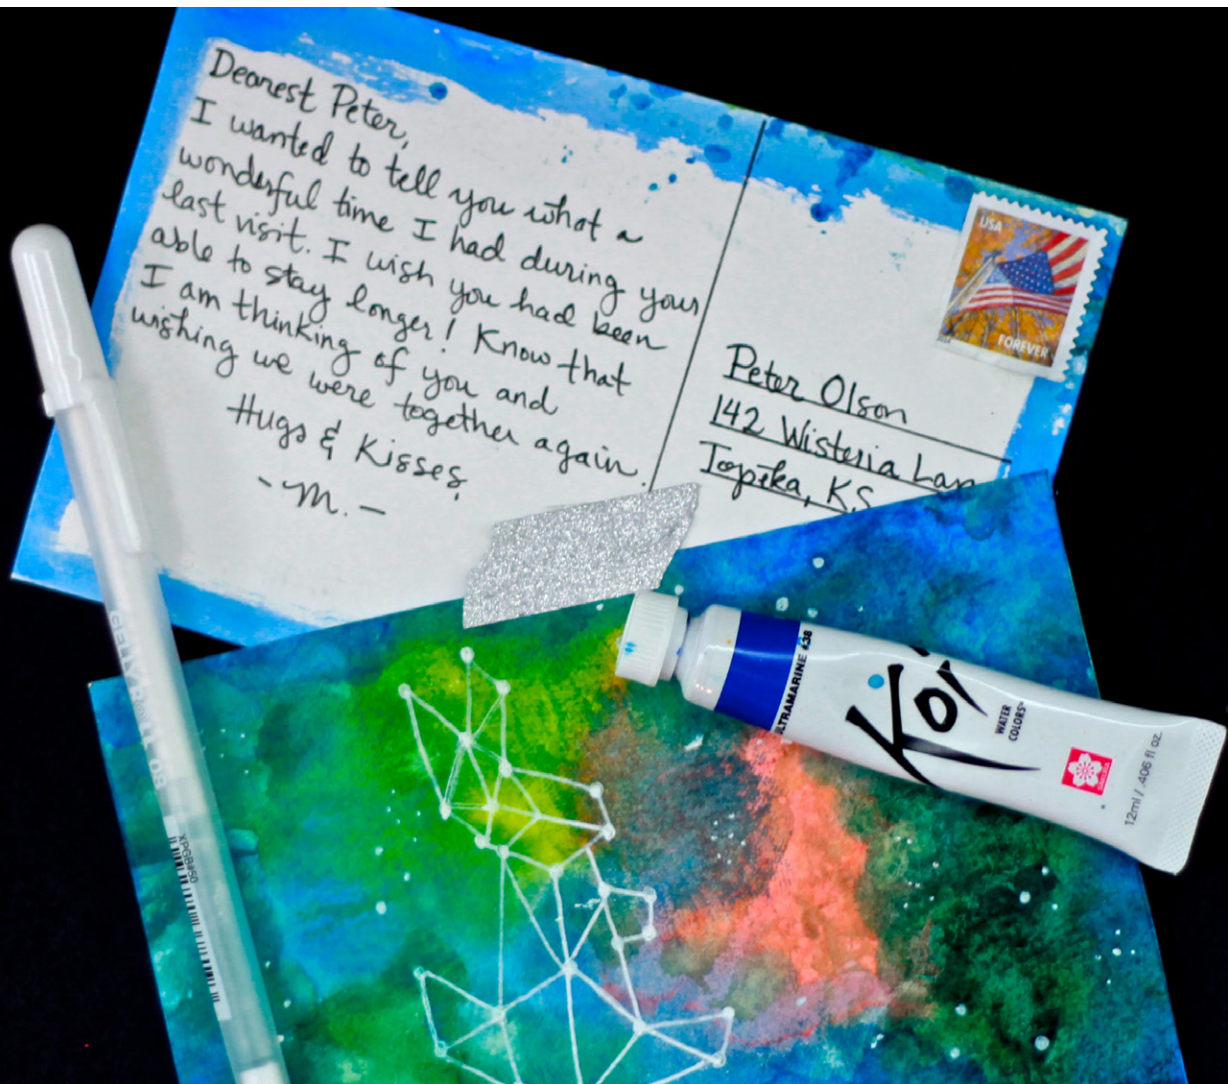 Dearest Peter,
I wanted to tell you what a
wonderful time I had during your
last visit. I wish you had been
able to stay longer! Know that
I am thinking of you and
wishing we were together again.
Hugs & Kisses,
-M.-
USA
FOREVER
Peter Olson
142 Wisteria Lan
Topika, KS
ULTRAMARINE #38
Koi
WATER
COLORS
12ml / .406 fl oz.
XPGB#50